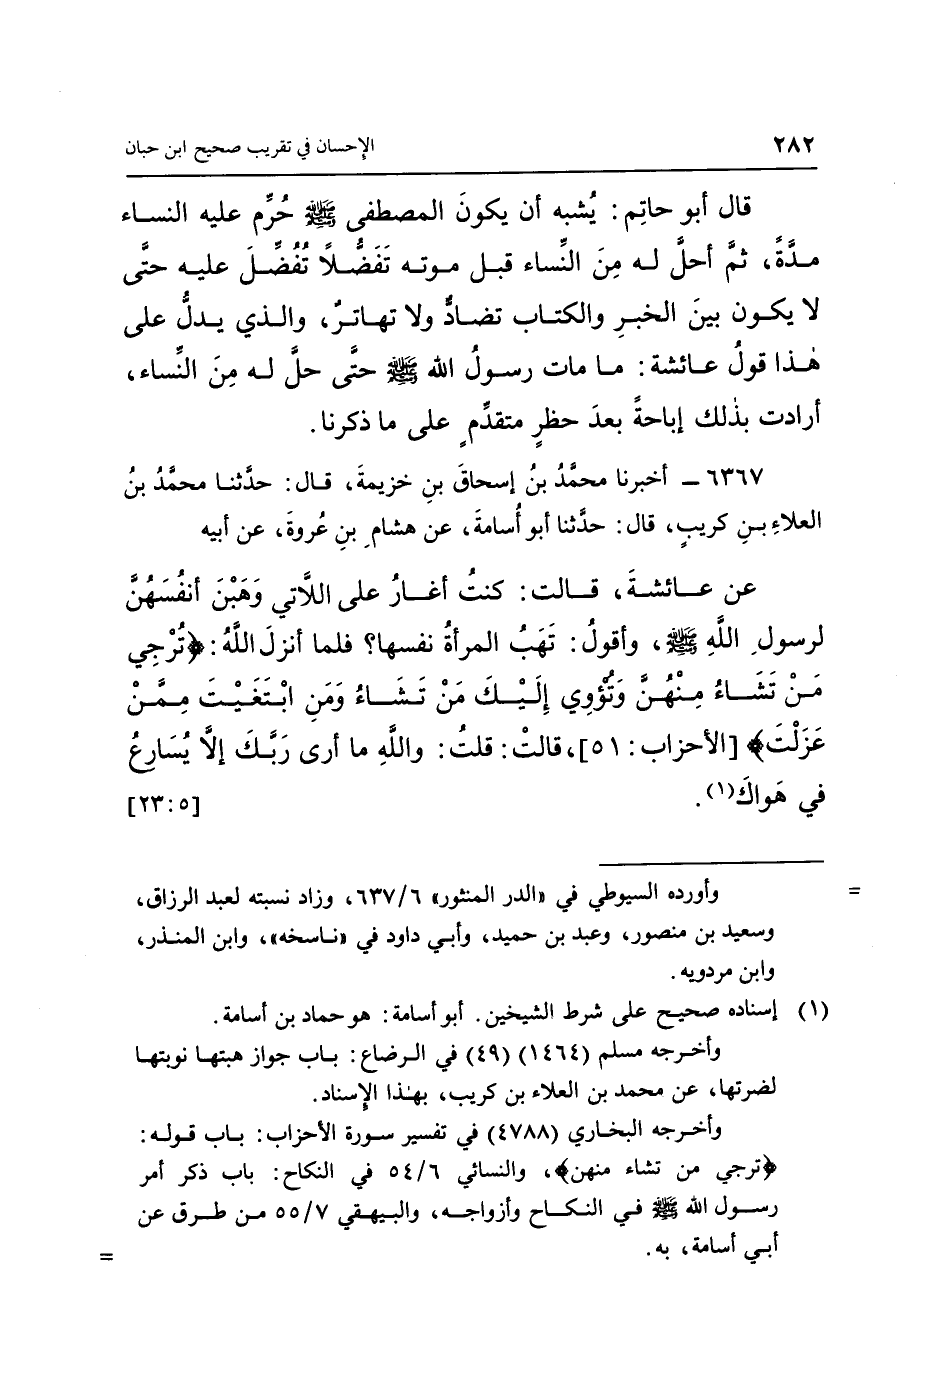 ٢٨٢ الإحسان في تقريب صحيح ابن حبان
قال أبو حاتِم: يُشبه أن يكونَ المصطفى ﷺ حُرِّم عليه النساء
مدَّةً، ثمَّ أحلَّ له مِنَ النِّساء قبل موته تَفَضُّلاً تُفُضِّلَ عليه حتَّى
لا يكون بينَ الخبرِ والكتاب تضادٌّ ولا تهاترٌ، والذي يدلُّ على
هٰذا قولُ عائشة: ما مات رسولُ الله ﷺ حتَّى حلَّ له مِنَ النِّساء،
أرادت بذٰلك إباحةً بعدَ حظرٍ متقدِّمٍ على ما ذكرنا.
٦٣٦٧ ــ أخبرنا محمَّدُ بنُ إسحاقَ بنِ خزيمةَ، قال: حدَّثنا محمَّدُ بنُ
العلاءِ بنِ كريبٍ، قال: حدَّثنا أبو أُسامةَ، عن هشامِ بنِ عُروةَ، عن أبيه
عن عائشةَ، قالت: كنتُ أغارُ على اللَّاتي وَهَبْنَ أنفُسَهُنَّ
لرسولِ اللَّهِ ﷺ، وأقولُ: تَهَبُ المرأةُ نفسها؟ فلما أنزلَ اللَّهُ: ﴿تُرْجِي
مَنْ تَشَاءُ مِنْهُنَّ وَتُؤْوِي إِلَيْكَ مَنْ تَشَاءُ وَمَنِ ابْتَغَيْتَ مِمَّنْ
عَزَلْتَ﴾ [الأحزاب: ٥١]، قالتْ: قلتُ: واللَّهِ ما أرى رَبَّكَ إلَّا يُسَارِعُ
في هَواكَ(١). [٢٣:٥]
= وأورده السيوطي في «الدر المنثور» ٦٣٧/٦، وزاد نسبته لعبد الرزاق،
وسعيد بن منصور، وعبد بن حميد، وأبي داود في «ناسخه»، وابن المنذر،
وابن مردويه.
(١) إسناده صحيح على شرط الشيخين. أبو أسامة: هو حماد بن أسامة.
وأخرجه مسلم (١٤٦٤) (٤٩) في الرضاع: باب جواز هبتها نوبتها
لضرتها، عن محمد بن العلاء بن كريب، بهٰذا الإسناد.
وأخرجه البخاري (٤٧٨٨) في تفسير سورة الأحزاب: باب قوله:
﴿ترجي من تشاء منهن﴾، والنسائي ٥٤/٦ في النكاح: باب ذكر أمر
رسول الله ﷺ في النكاح وأزواجه، والبيهقي ٥٥/٧ من طرق عن
أبي أسامة، به. =